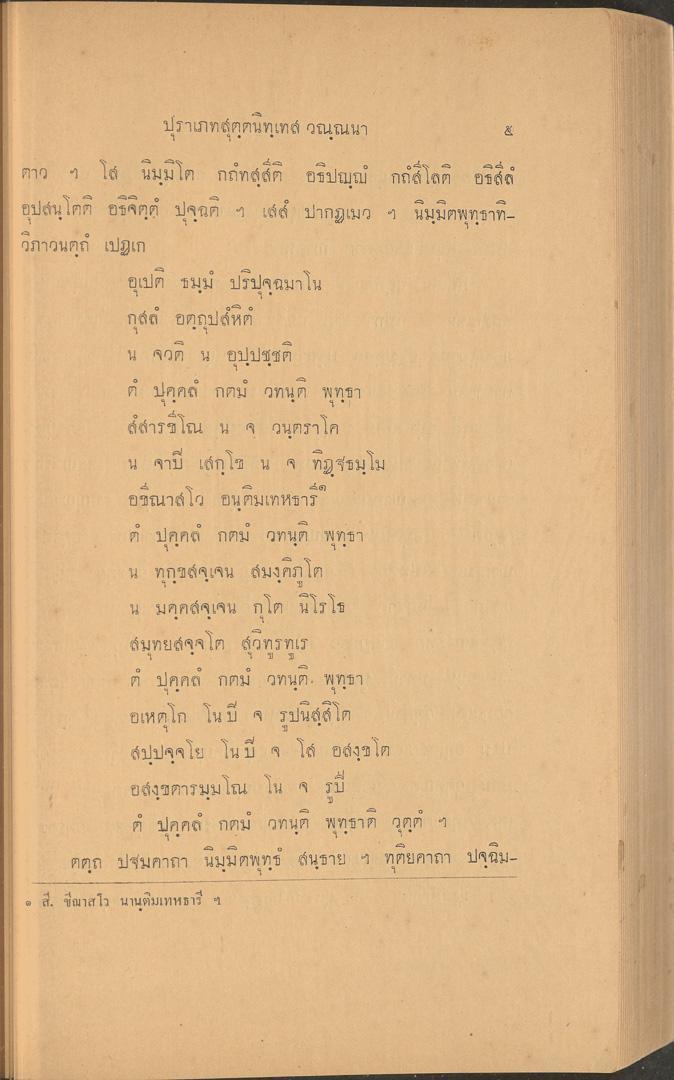 ปุราเภทสุตฺตนิทฺเทส วณฺณนา ๕
ตาว ฯ โส นิมฺมิโต กถํทสฺสีติ อธิปญฺญํ กถํสีโลติ อธิสีลํ
อุปสนฺโตติ อธิจิตฺตํ ปุจฺฉติ ฯ เสสํ ปากฏเมว ฯ นิมฺมิตพุทฺธาทิ–
วิภาวนตฺถํ เปฏเก
อุเปติ ธมฺมํ ปริปุจฺฉมาโน
กุสลํ อตฺถุปสํหิตํ
น จวติ น อุปฺปชฺชติ
ตํ ปุคฺคลํ กตมํ วทนฺติ พุทฺธา
สํสารขีโณ น จ วนฺตราโค
น จาปี เสกฺโข น จ ทิฏฺฐธมฺโม
อขีณาสโว อนฺติมเทหธารี๑
ตํ ปุคฺคลํ กตมํ วทนฺติ พุทฺธา
น ทุกฺขสจฺเจน สมงฺคิภูโต
น มคฺคสจฺเจน กุโต นิโรโธ
สมุทยสจฺจโต สุวิทูรทูเร
ตํ ปุคฺคลํ กตมํ วทนฺติ พุทฺธา
อเหตุโก โนปี จ รูปนิสฺสิโต
สปฺปจฺจโย โนปี จ โส อสงฺขโต
อสงฺขตารมฺมโณ โน จ รูปี
ตํ ปุคฺคลํ กตมํ วทนฺติ พุทฺธาติ วุตฺตํ ฯ
ตตฺถ ปฐมคาถา นิมฺมิตพุทฺธํ สนฺธาย ฯ ทุติยคาถา ปจฺฉิม–
๑ สี. ขีณาสโว นานฺติมเทหธารี ฯ